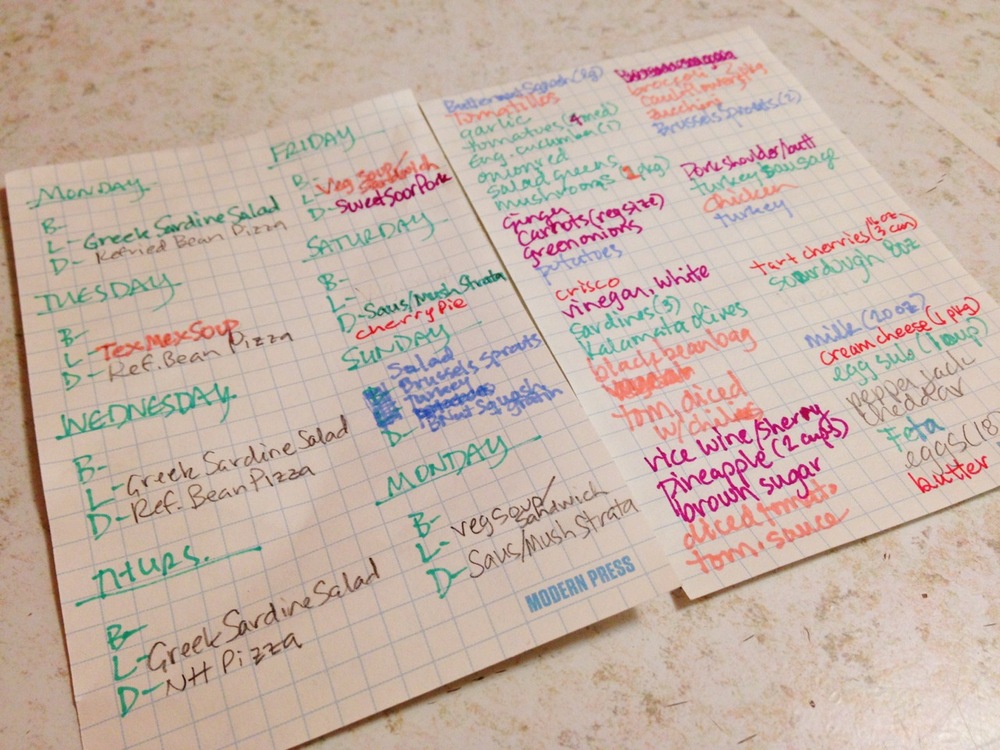 MONDAY
B-
L- Greek Sardine Salad
D- Refried Bean Pizza
TUESDAY
B-
L- Tex Mex Soup
D- Ref. Bean Pizza
WEDNESDAY
B-
L- Greek Sardine Salad
D- Ref. Bean Pizza
THURS.
B-
L- Greek Sardine Salad
D- NH Pizza
FRIDAY
B-
L- Veg Soup/Sandwich
D- Sweet Sour Pork
SATURDAY
B-
L-
D- Saus/Mush Strata
cherry Pie
SUNDAY
Salad
Brussels Sprouts
Turkey
D- B'Nut Squash gratin
MONDAY
B-
L- Veg Soup/Sandwich
D- Saus/Mush Strata
MODERN PRESS
Butternut Squash
Tomatillos
garlic
tomatoes (4 med)
Eng. cucumber (1)
onion red
salad greens
mushrooms 2 pkg)
ginger
Carrots (reg size)
green onions
potatoes
crisco
vinegar, white
sardines (3)
kalamata olives
black bean bag
tom, diced
w/ chilies
rice wine/Sherry
pineapple (2 cups)
brown sugar
diced tomato
tom. sauce
broccoli
cauliflower
zucchini
Brussels Sprouts (2)
Pork shoulder/butt
turkey sausage
chicken
turkey
tart cherries (16 oz / 3 cans)
sourdough 8oz
milk (20 oz)
cream cheese (1 pkg)
egg sub (1 cup)
pepper jack
cheddar
Feta
eggs (18)
butter